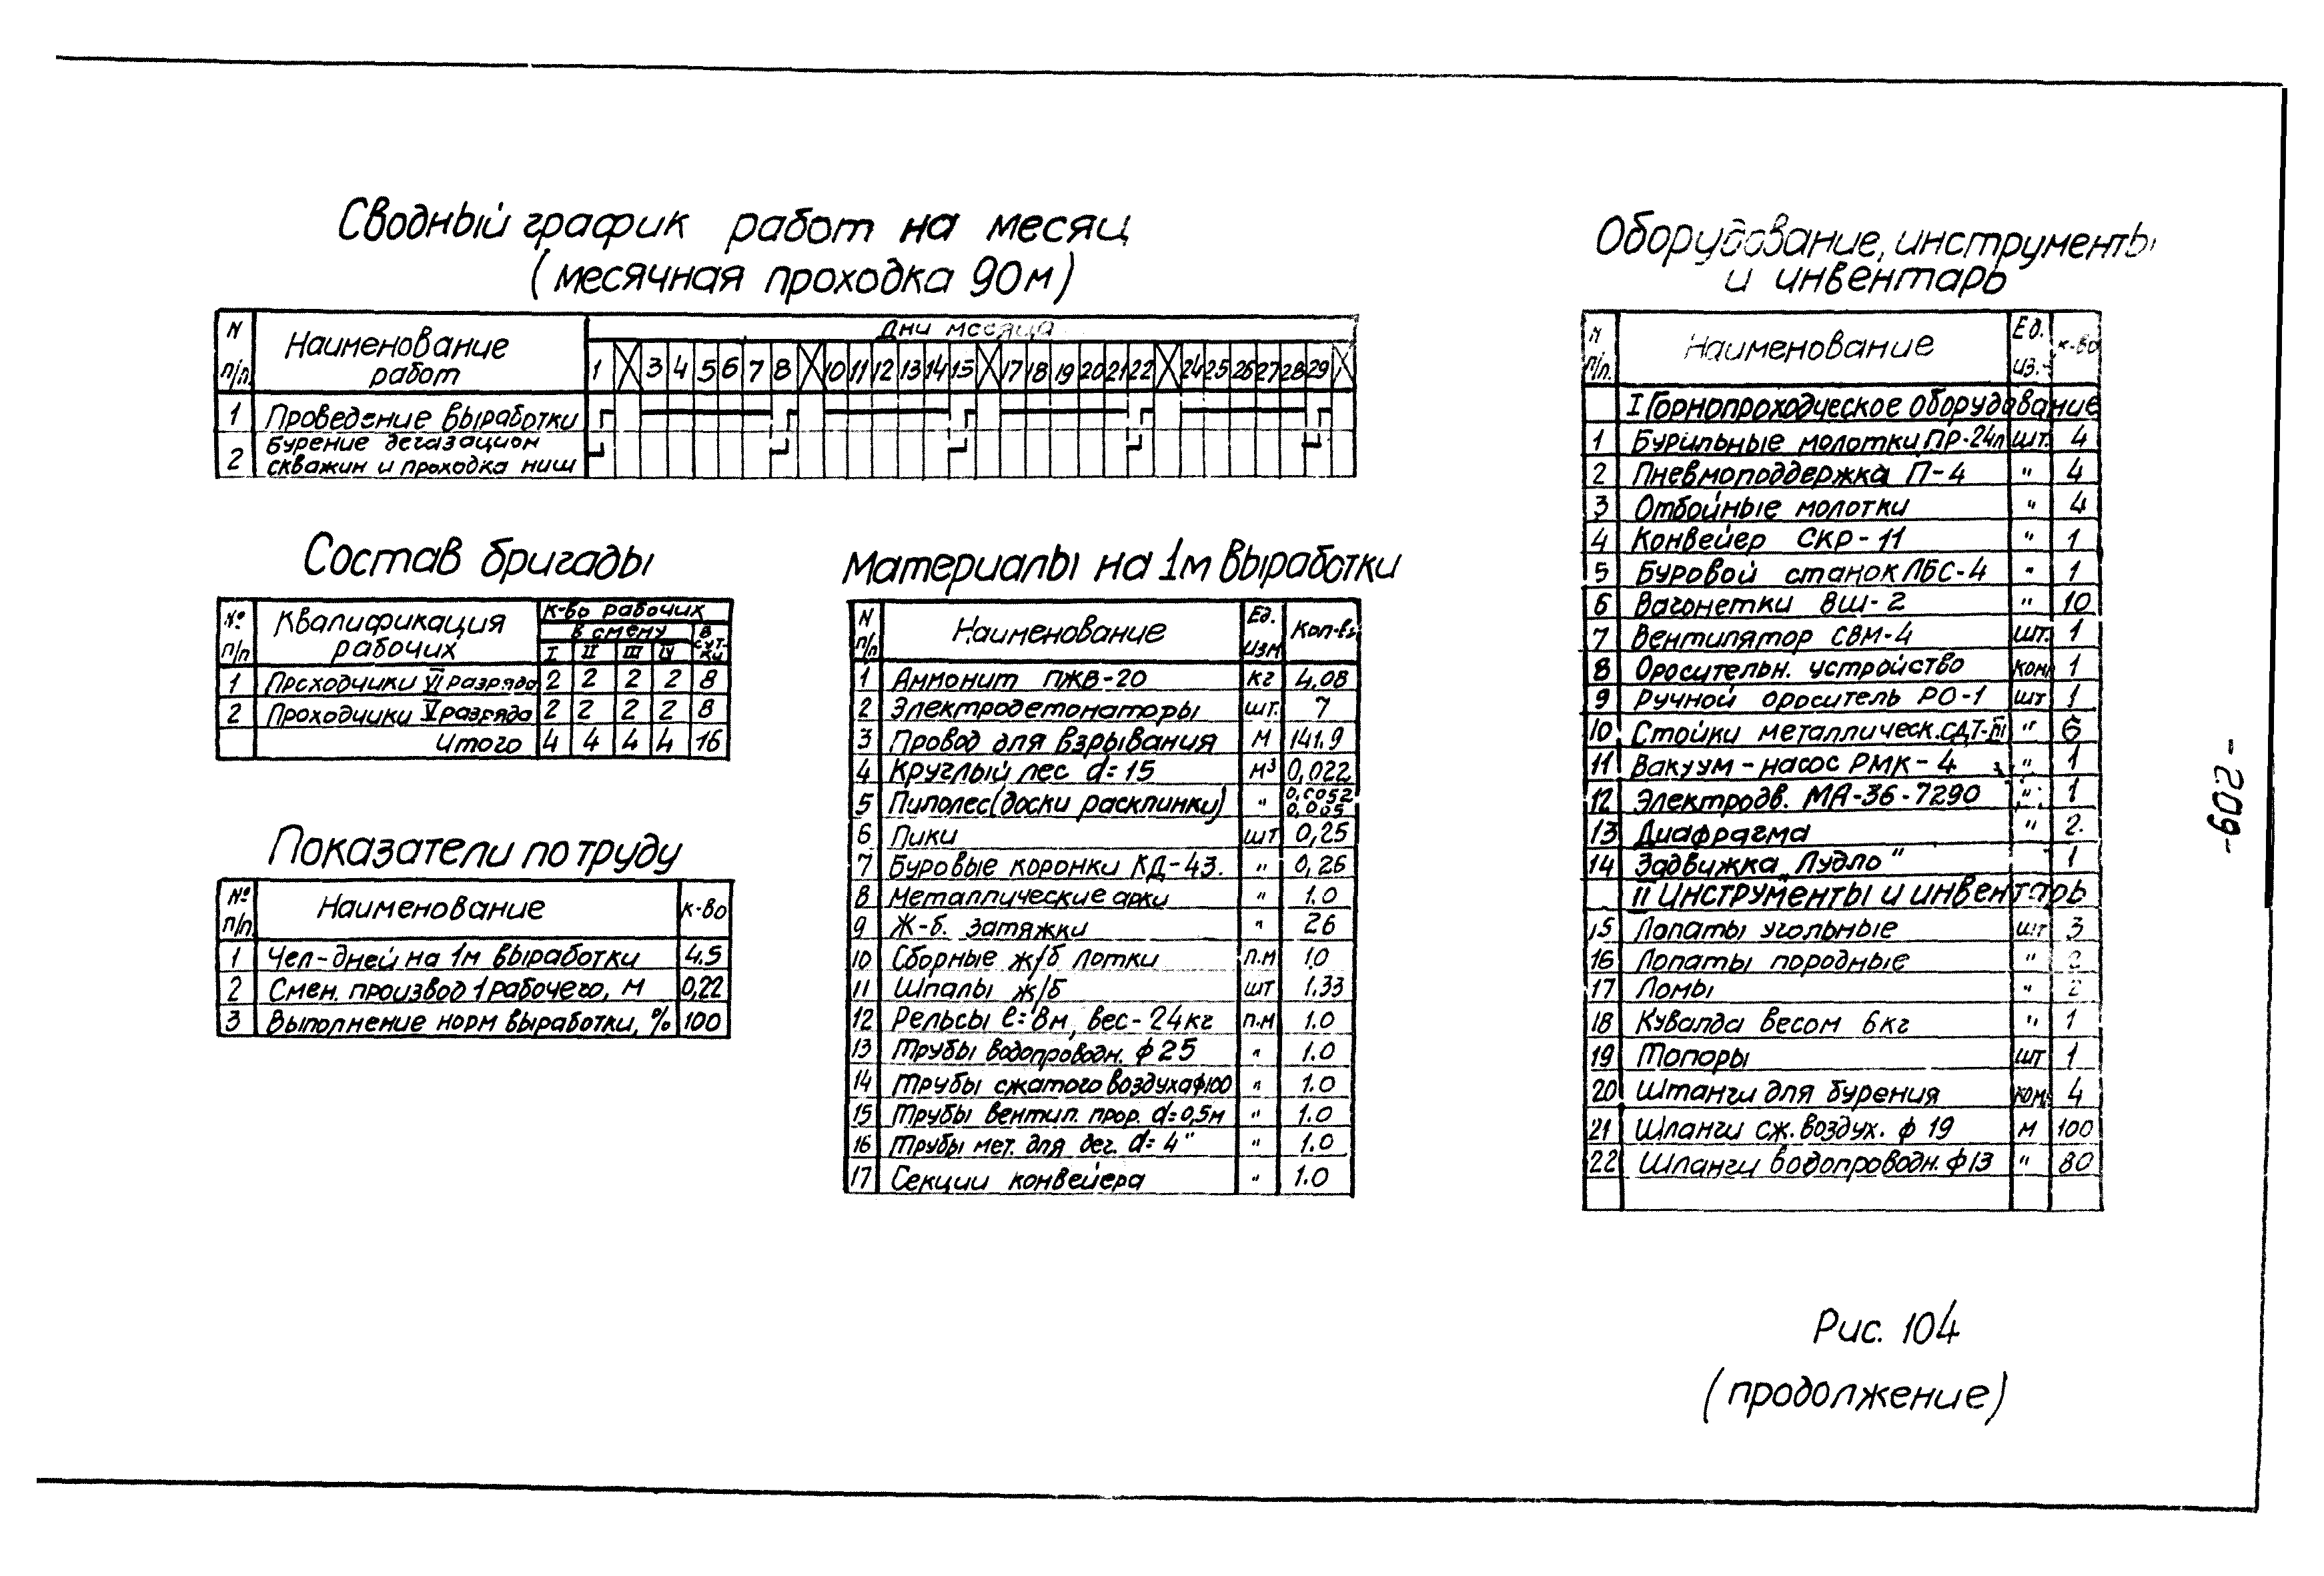 Сводный график работ на месяц
(месячная проходка 90м)
N п/п. Наименование работ Дни месяца
1 3 4 5 6 7 8 10 11 12 13 14 15 17 18 19 20 21 22 24 25 26 27 28 29
1 Проведение выработки
2 Бурение дегазацион скважин и проходка ниш
Состав бригады
№ п/п Квалификация рабочих к-во рабочих
в смену в сут-ки
I II III IV
1 Проходчики VI разряда 2 2 2 2 8
2 Проходчики V разряда 2 2 2 2 8
Итого 4 4 4 4 16
Показатели по труду
№ п/п Наименование к-во
1 Чел-дней на 1м выработки 4.5
2 Смен. производ 1 рабочего, м 0,22
3 Выполнение норм выработки, % 100
Материалы на 1м выработки
N п/п Наименование Ед. изм Кол-во
1 Аммонит ПЖВ-20 кг 4.08
2 Электродетонаторы шт. 7
3 Провод для взрывания м 141.9
4 Круглый лес d=15 м³ 0,022
5 Пиполес (доски расклинки) " 0,0052 0,005
6 Пики шт 0,25
7 Буровые коронки КД-43. " 0,26
8 Металлические арки " 1.0
9 Ж-б. затяжки " 26
10 Сборные ж/б лотки п.м 1.0
11 Шпалы ж/б шт 1.33
12 Рельсы ℓ=8м, вес-24кг п.м 1.0
13 Трубы водопроводн. ф25 " 1.0
14 Трубы сжатого воздуха ф100 " 1.0
15 Трубы вентил. прор. d=0,5м " 1.0
16 Трубы мет. для дег. d=4" " 1.0
17 Секции конвейера " 1.0
Оборудование, инструменты
и инвентарь
N п/п. Наименование Ед. из. к-во
I Горнопроходческое оборудование
1 Бурильные молотки ПР-24л шт. 4
2 Пневмоподдержка П-4 " 4
3 Отбойные молотки " 4
4 Конвейер СКР-11 " 1
5 Буровой станок ЛБС-4 " 1
6 Вагонетки ВШ-2 " 10
7 Вентилятор СВМ-4 шт. 1
8 Оросительн. устройство ком 1
9 Ручной ороситель РО-1 шт 1
10 Стойки металлическ. СДТ-III " 6
11 Вакуум-насос РМК-4 " 1
12 Электродв. МА-36-7290 " 1
13 Диафрагма " 2.
14 Задвижка „Лудло" " 1
II Инструменты и инвентарь
15 Лопаты угольные шт 3
16 Лопаты породные " 2
17 Ломы " 2
18 Кувалда весом 6кг " 1
19 Топоры шт 1
20 Штанги для бурения ком. 4
21 Шланги сж. воздух. ф 19 м 100
22 Шланги водопроводн. ф13 " 80
Рис. 104
(продолжение)
-209-